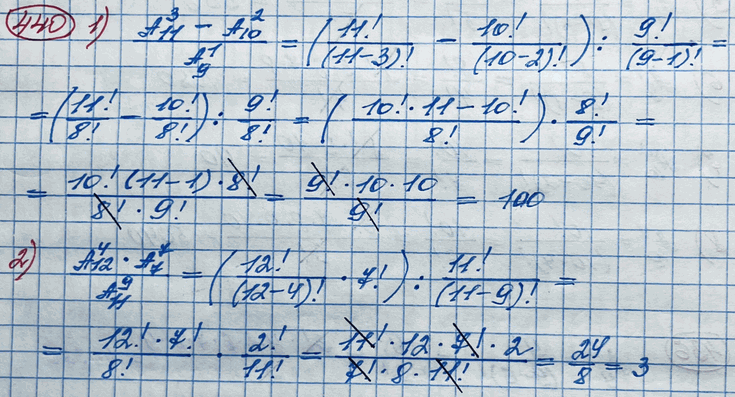 440 1) (A₁₁³ − A₁₀²)/A₉¹ = (11!/(11−3)! − 10!/(10−2)!) : 9!/(9−1)! =
= (11!/8! − 10!/8!) : 9!/8! = ((10!·11−10!)/8!) · 8!/9! =
= (10!(11−1)·8!)/(8!·9!) = (9!·10·10)/9! = 100
2) (A₁₂⁴ · A₇⁷)/A₁₁⁹ = (12!/(12−4)! · 7!) : 11!/(11−9)! =
= (12!·7!)/8! · 2!/11! = (11!·12·7!·2)/(7!·8·11!) = 24/8 = 3